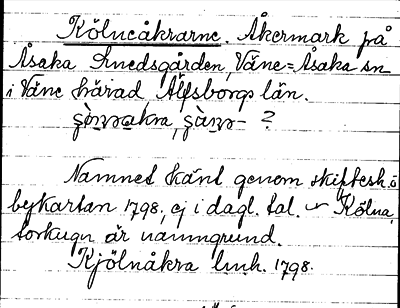 Kölneåkrarne. Åkermark på
Åsaka Smedsgården, Väne=Åsaka sn
i Väne härad Älfsborgs län.
?
Namnet känt genom skiftesh. o
bykartan 1798, ej i dagl. tal. Kölna,
torkugn är namngrund.
Kjölnåkra lmh. 1798.